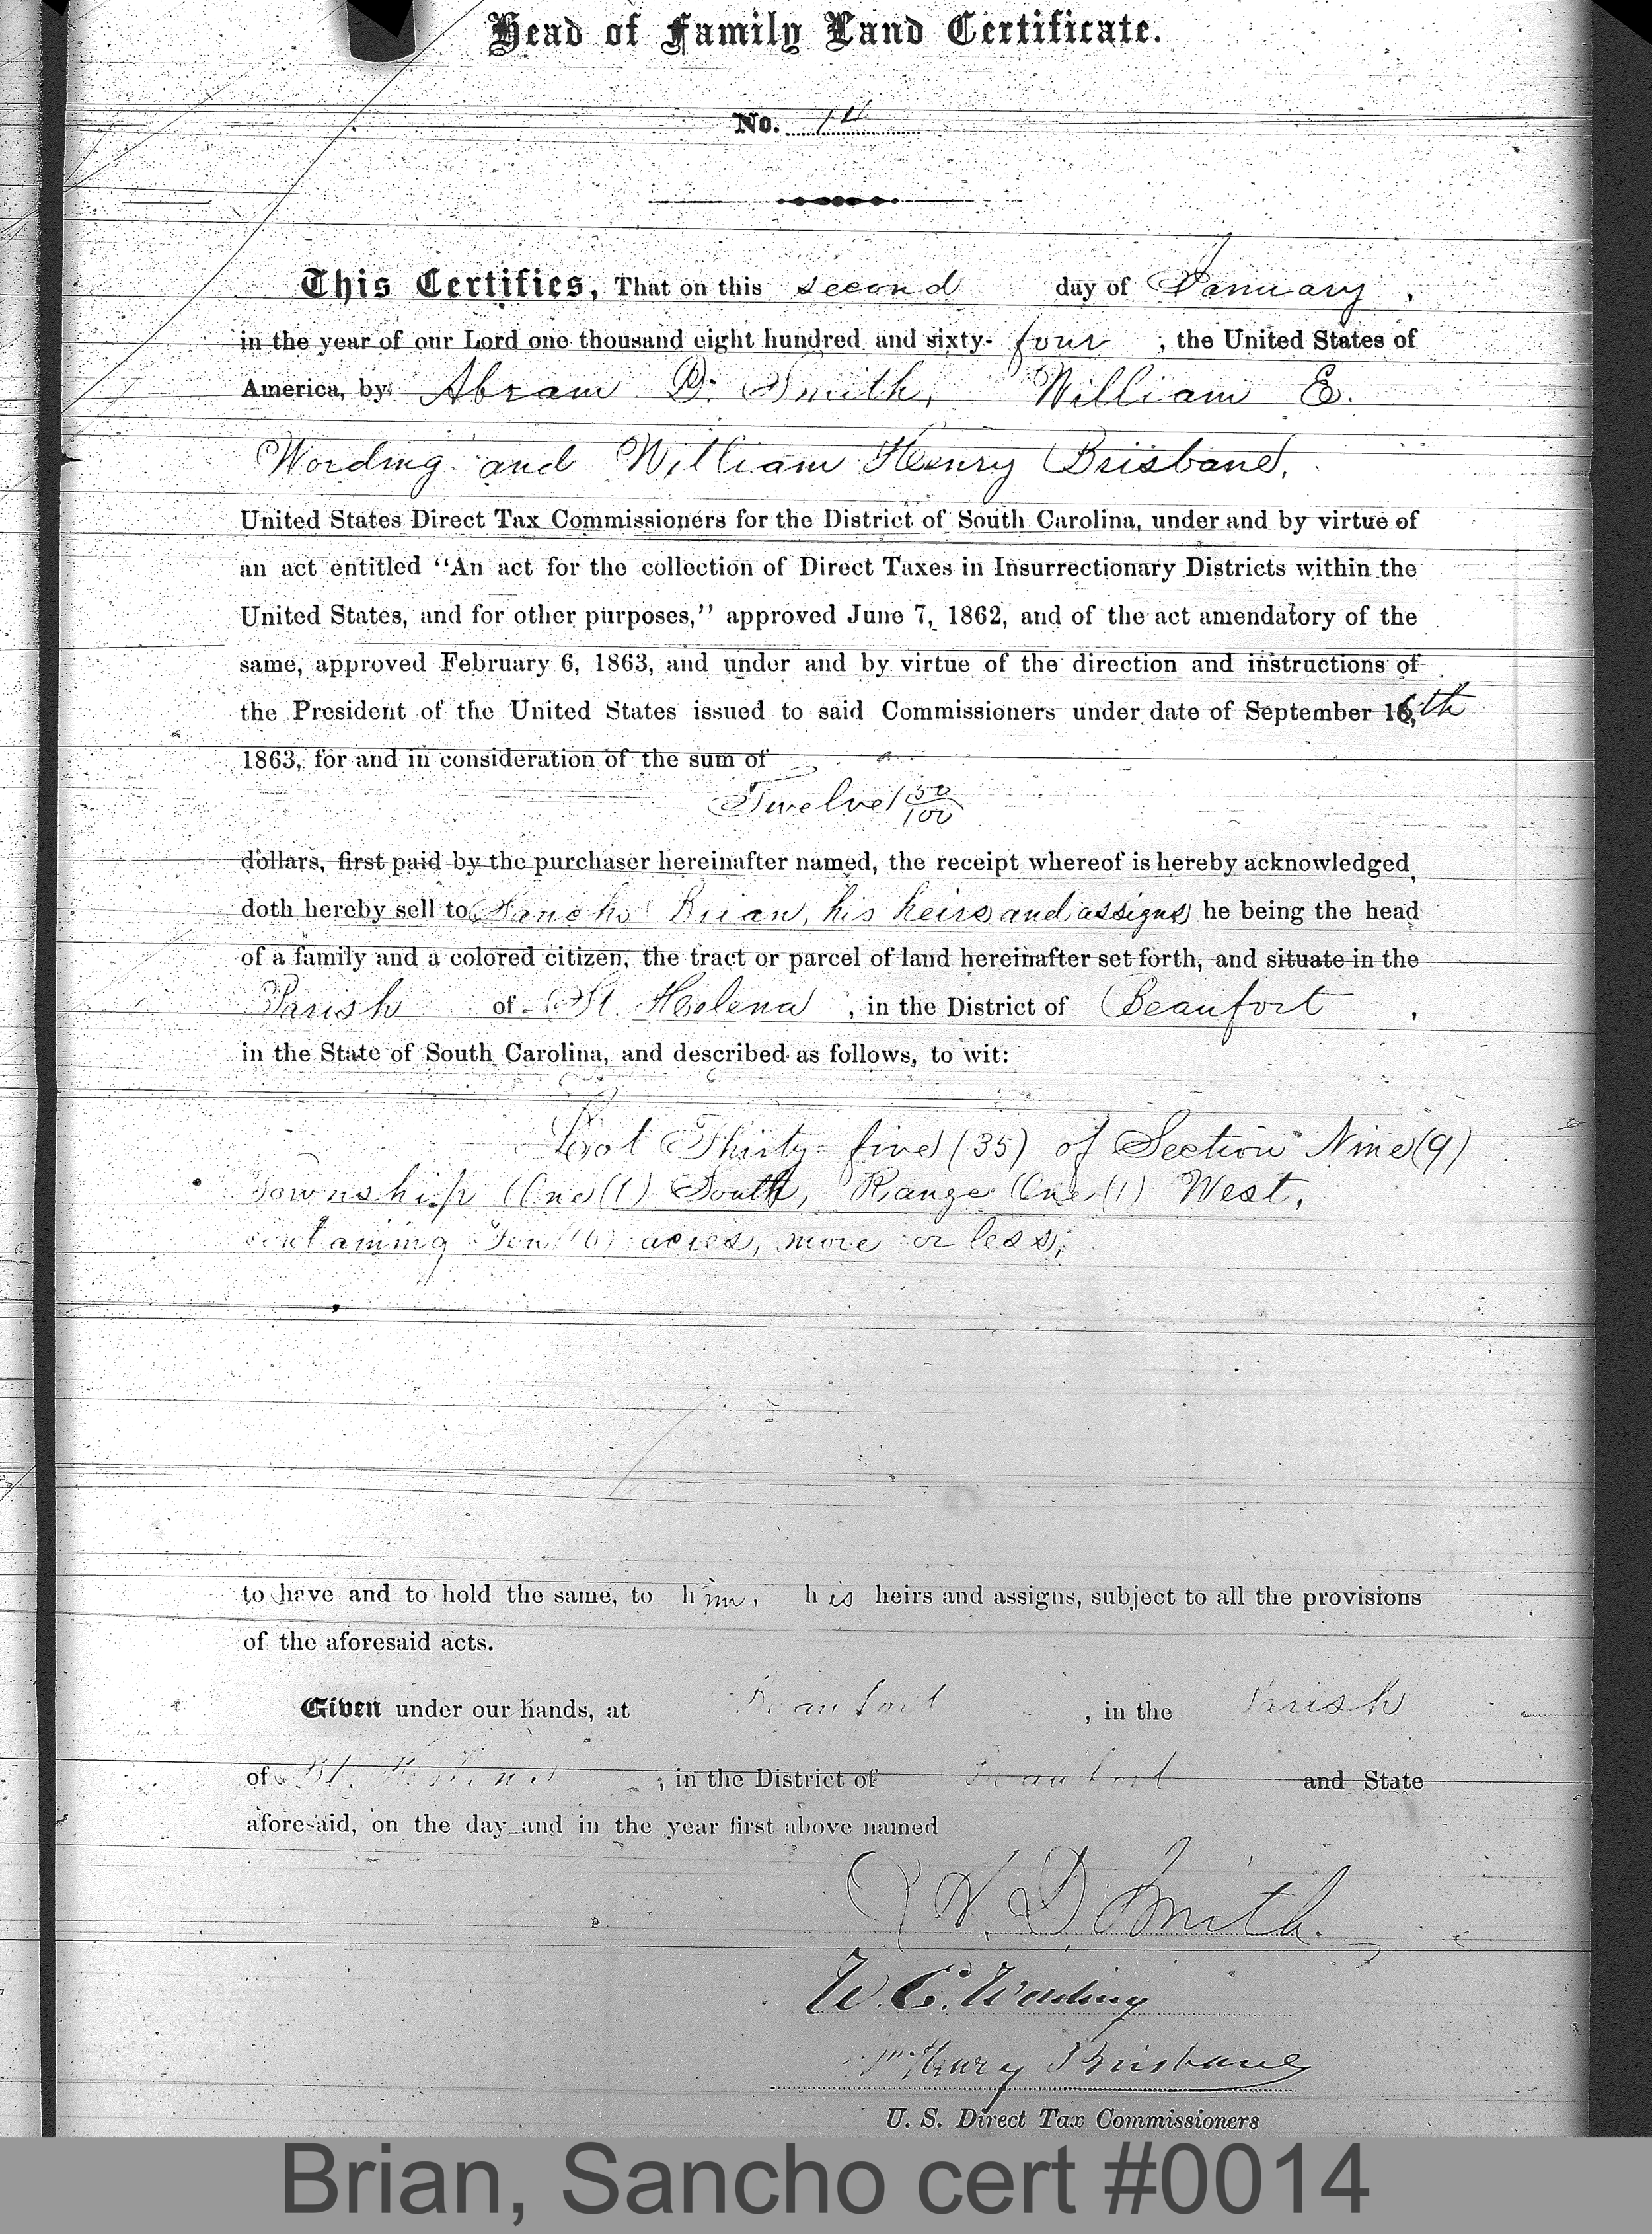 Head of Family Land Certificate.
No. 14
This Certifies, That on this second day of January,
in the year of our Lord one thousand eight hundred and sixty-four, the United States of
America, by Abram D. Smith, William E.
Wording and William Henry Brisbane,
United States Direct Tax Commissioners for the District of South Carolina, under and by virtue of
an act entitled “An act for the collection of Direct Taxes in Insurrectionary Districts within the
United States, and for other purposes,” approved June 7, 1862, and of the act amendatory of the
same, approved February 6, 1863, and under and by virtue of the direction and instructions of
the President of the United States issued to said Commissioners under date of September 16th
1863, for and in consideration of the sum of
Twelve 50/100
dollars, first paid by the purchaser hereinafter named, the receipt whereof is hereby acknowledged,
doth hereby sell to Sancho Brian, his heirs and assigns he being the head
of a family and a colored citizen, the tract or parcel of land hereinafter set forth, and situate in the
Parish of St. Helena, in the District of Beaufort,
in the State of South Carolina, and described as follows, to wit:
Lot Thirty-five (35) of Section Nine (9)
Township One (1) South, Range One (1) West,
containing Ten (10) acres, more or less,
to have and to hold the same, to him, his heirs and assigns, subject to all the provisions
of the aforesaid acts.
Given under our hands, at Beaufort, in the Parish
of St. Helena, in the District of Beaufort and State
aforesaid, on the day and in the year first above named
A. D. Smith.
W. E. Wording
Wm Henry Brisbane
U. S. Direct Tax Commissioners
Brian, Sancho cert #0014